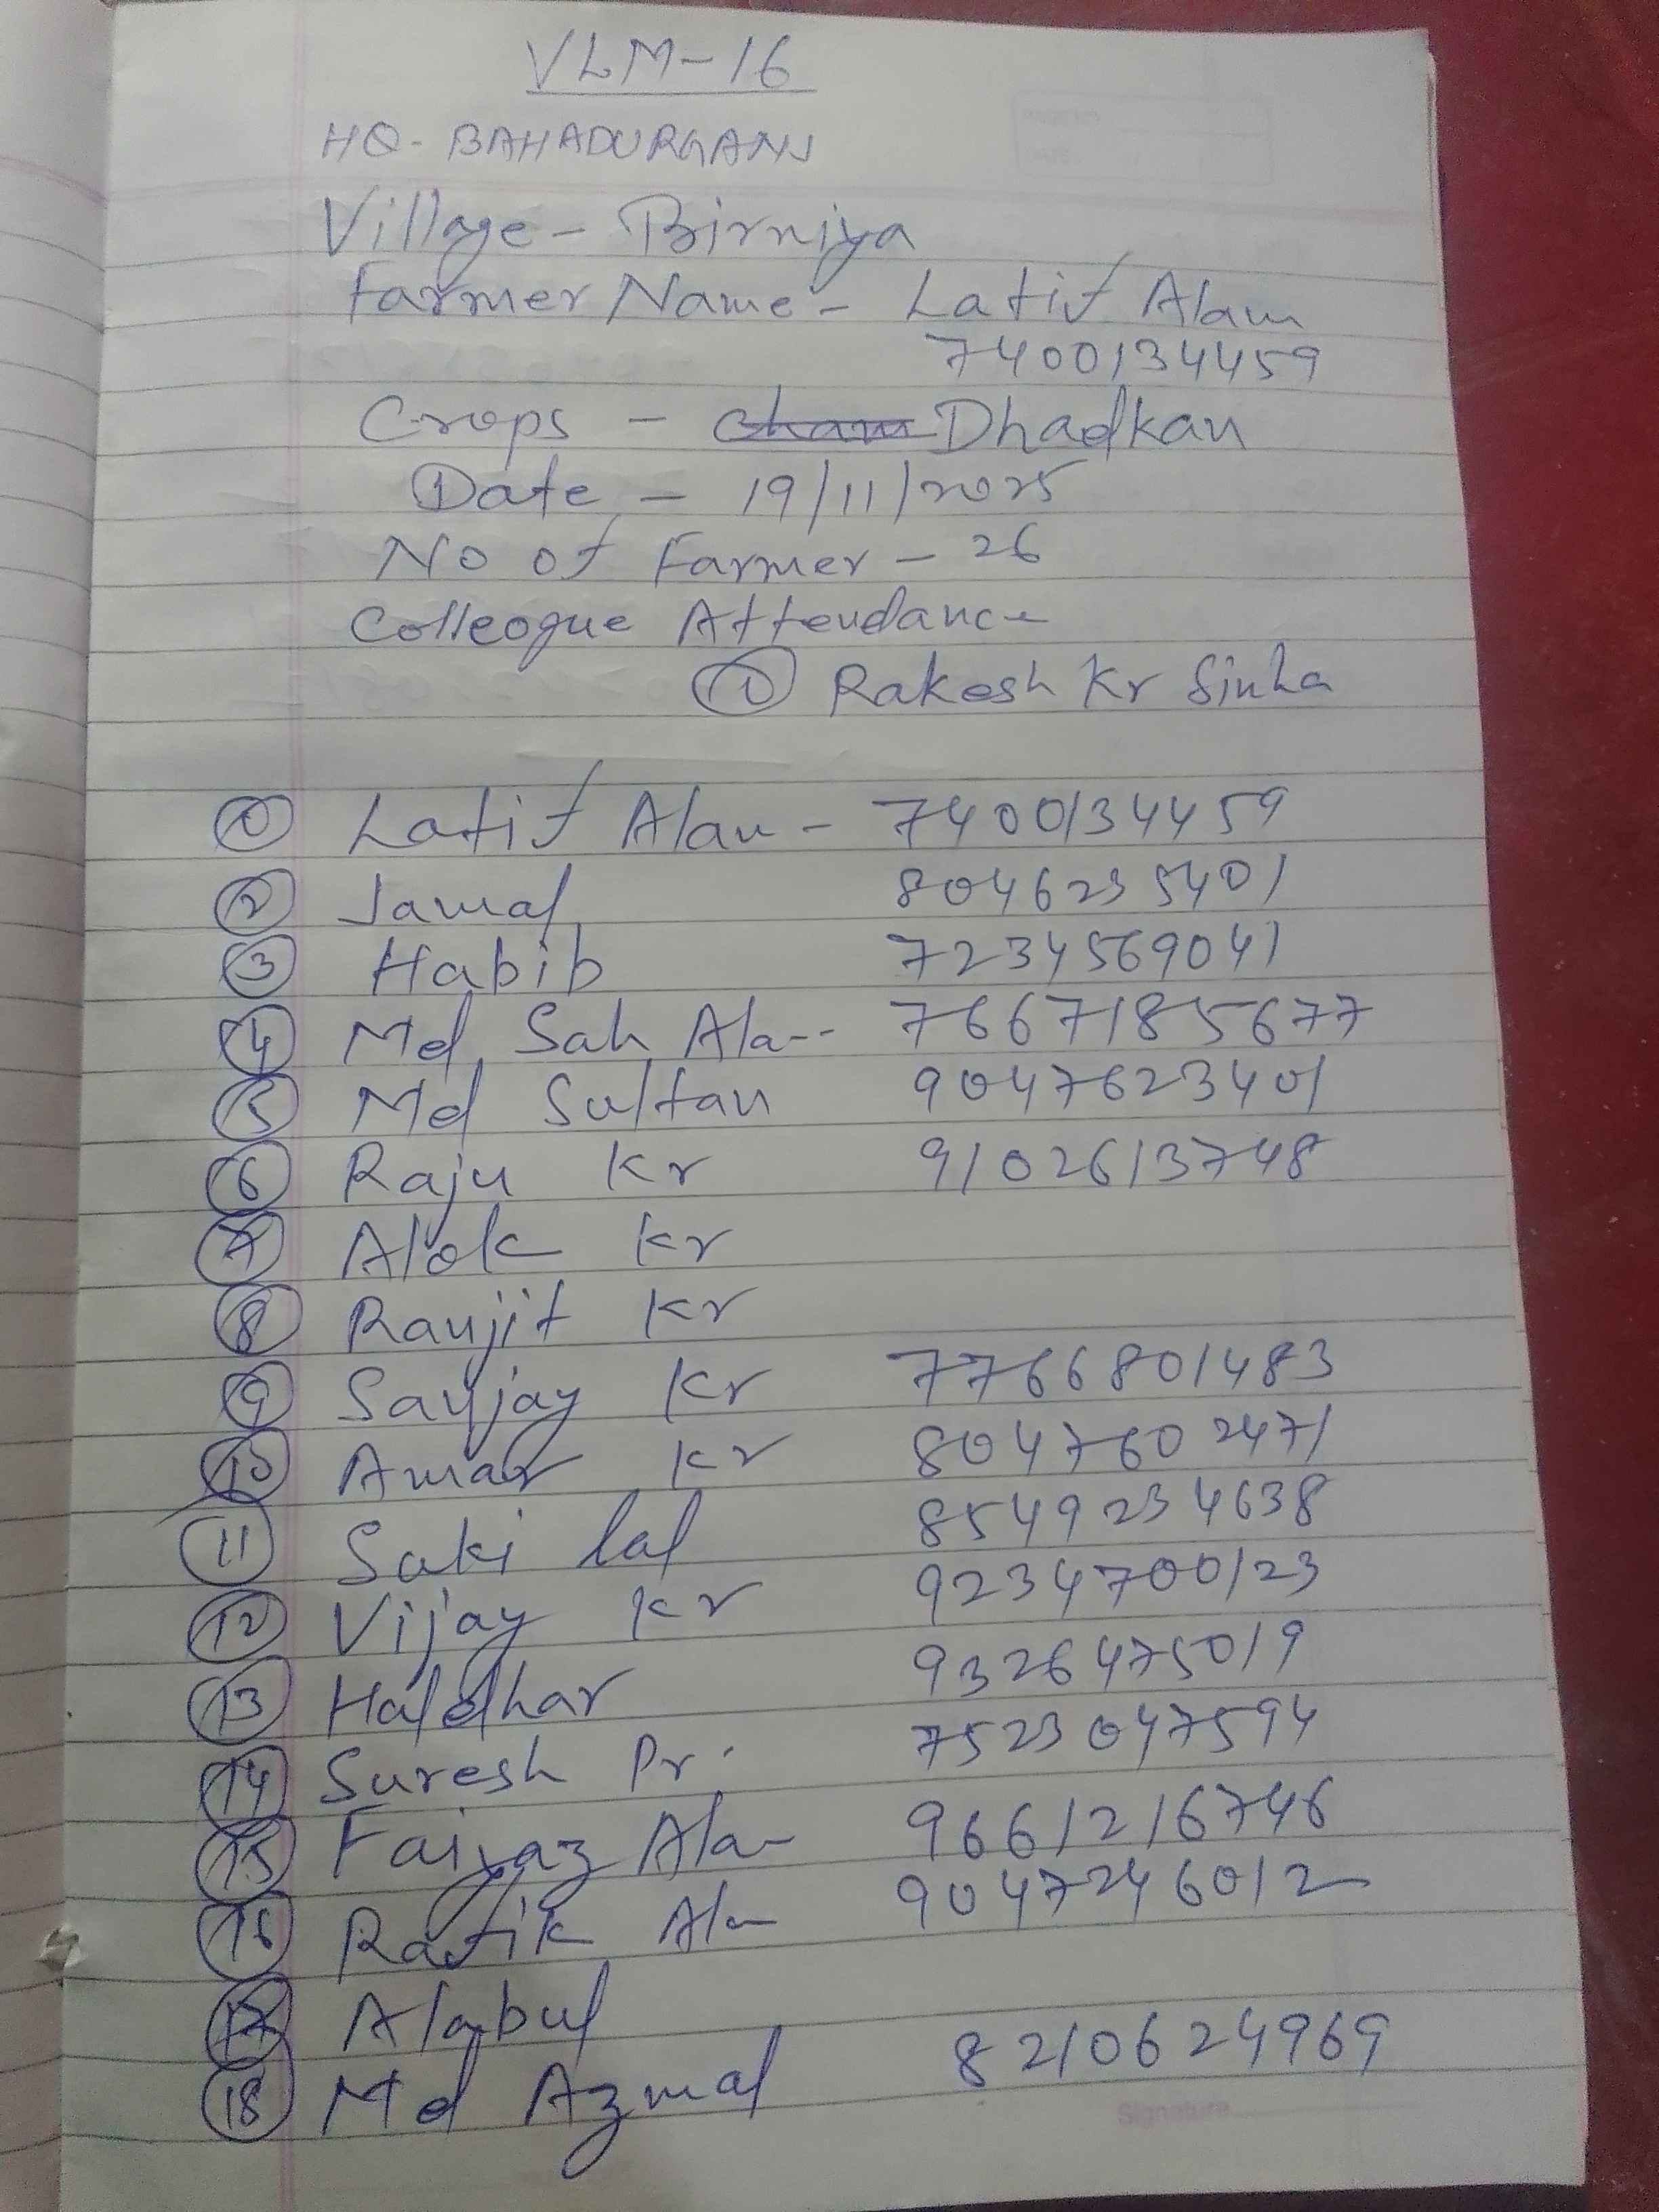 VLM-16
HQ- BAHADURGANJ
Village - Birniya
Farmer Name - Latif Alam
7400134459
Crops - Dhadkan
Date - 19/11/2025
No of Farmer - 26
Colleogue Attendance
① Rakesh Kr Sinha
① Latif Alam - 7400134459
② Jamal 8046235401
③ Habib 7234569041
④ Md Sah Ala-- 7667185677
⑤ Md Sultan 9047623401
⑥ Raju Kr 9102613748
⑦ Alok Kr
⑧ Ranjit Kr
⑨ Sanjay Kr 7766801483
⑩ Amar Kr 8047602471
⑪ Saki lal 8549234638
⑫ Vijay Kr 9234700123
⑬ Haldhar 9326475019
⑭ Suresh Pr. 7523047594
⑮ Faiyaz Ala- 9661216746
⑯ Rafik Ala 9047246012
⑰ Alabul
⑱ Md Azmal 8210624969
Signature